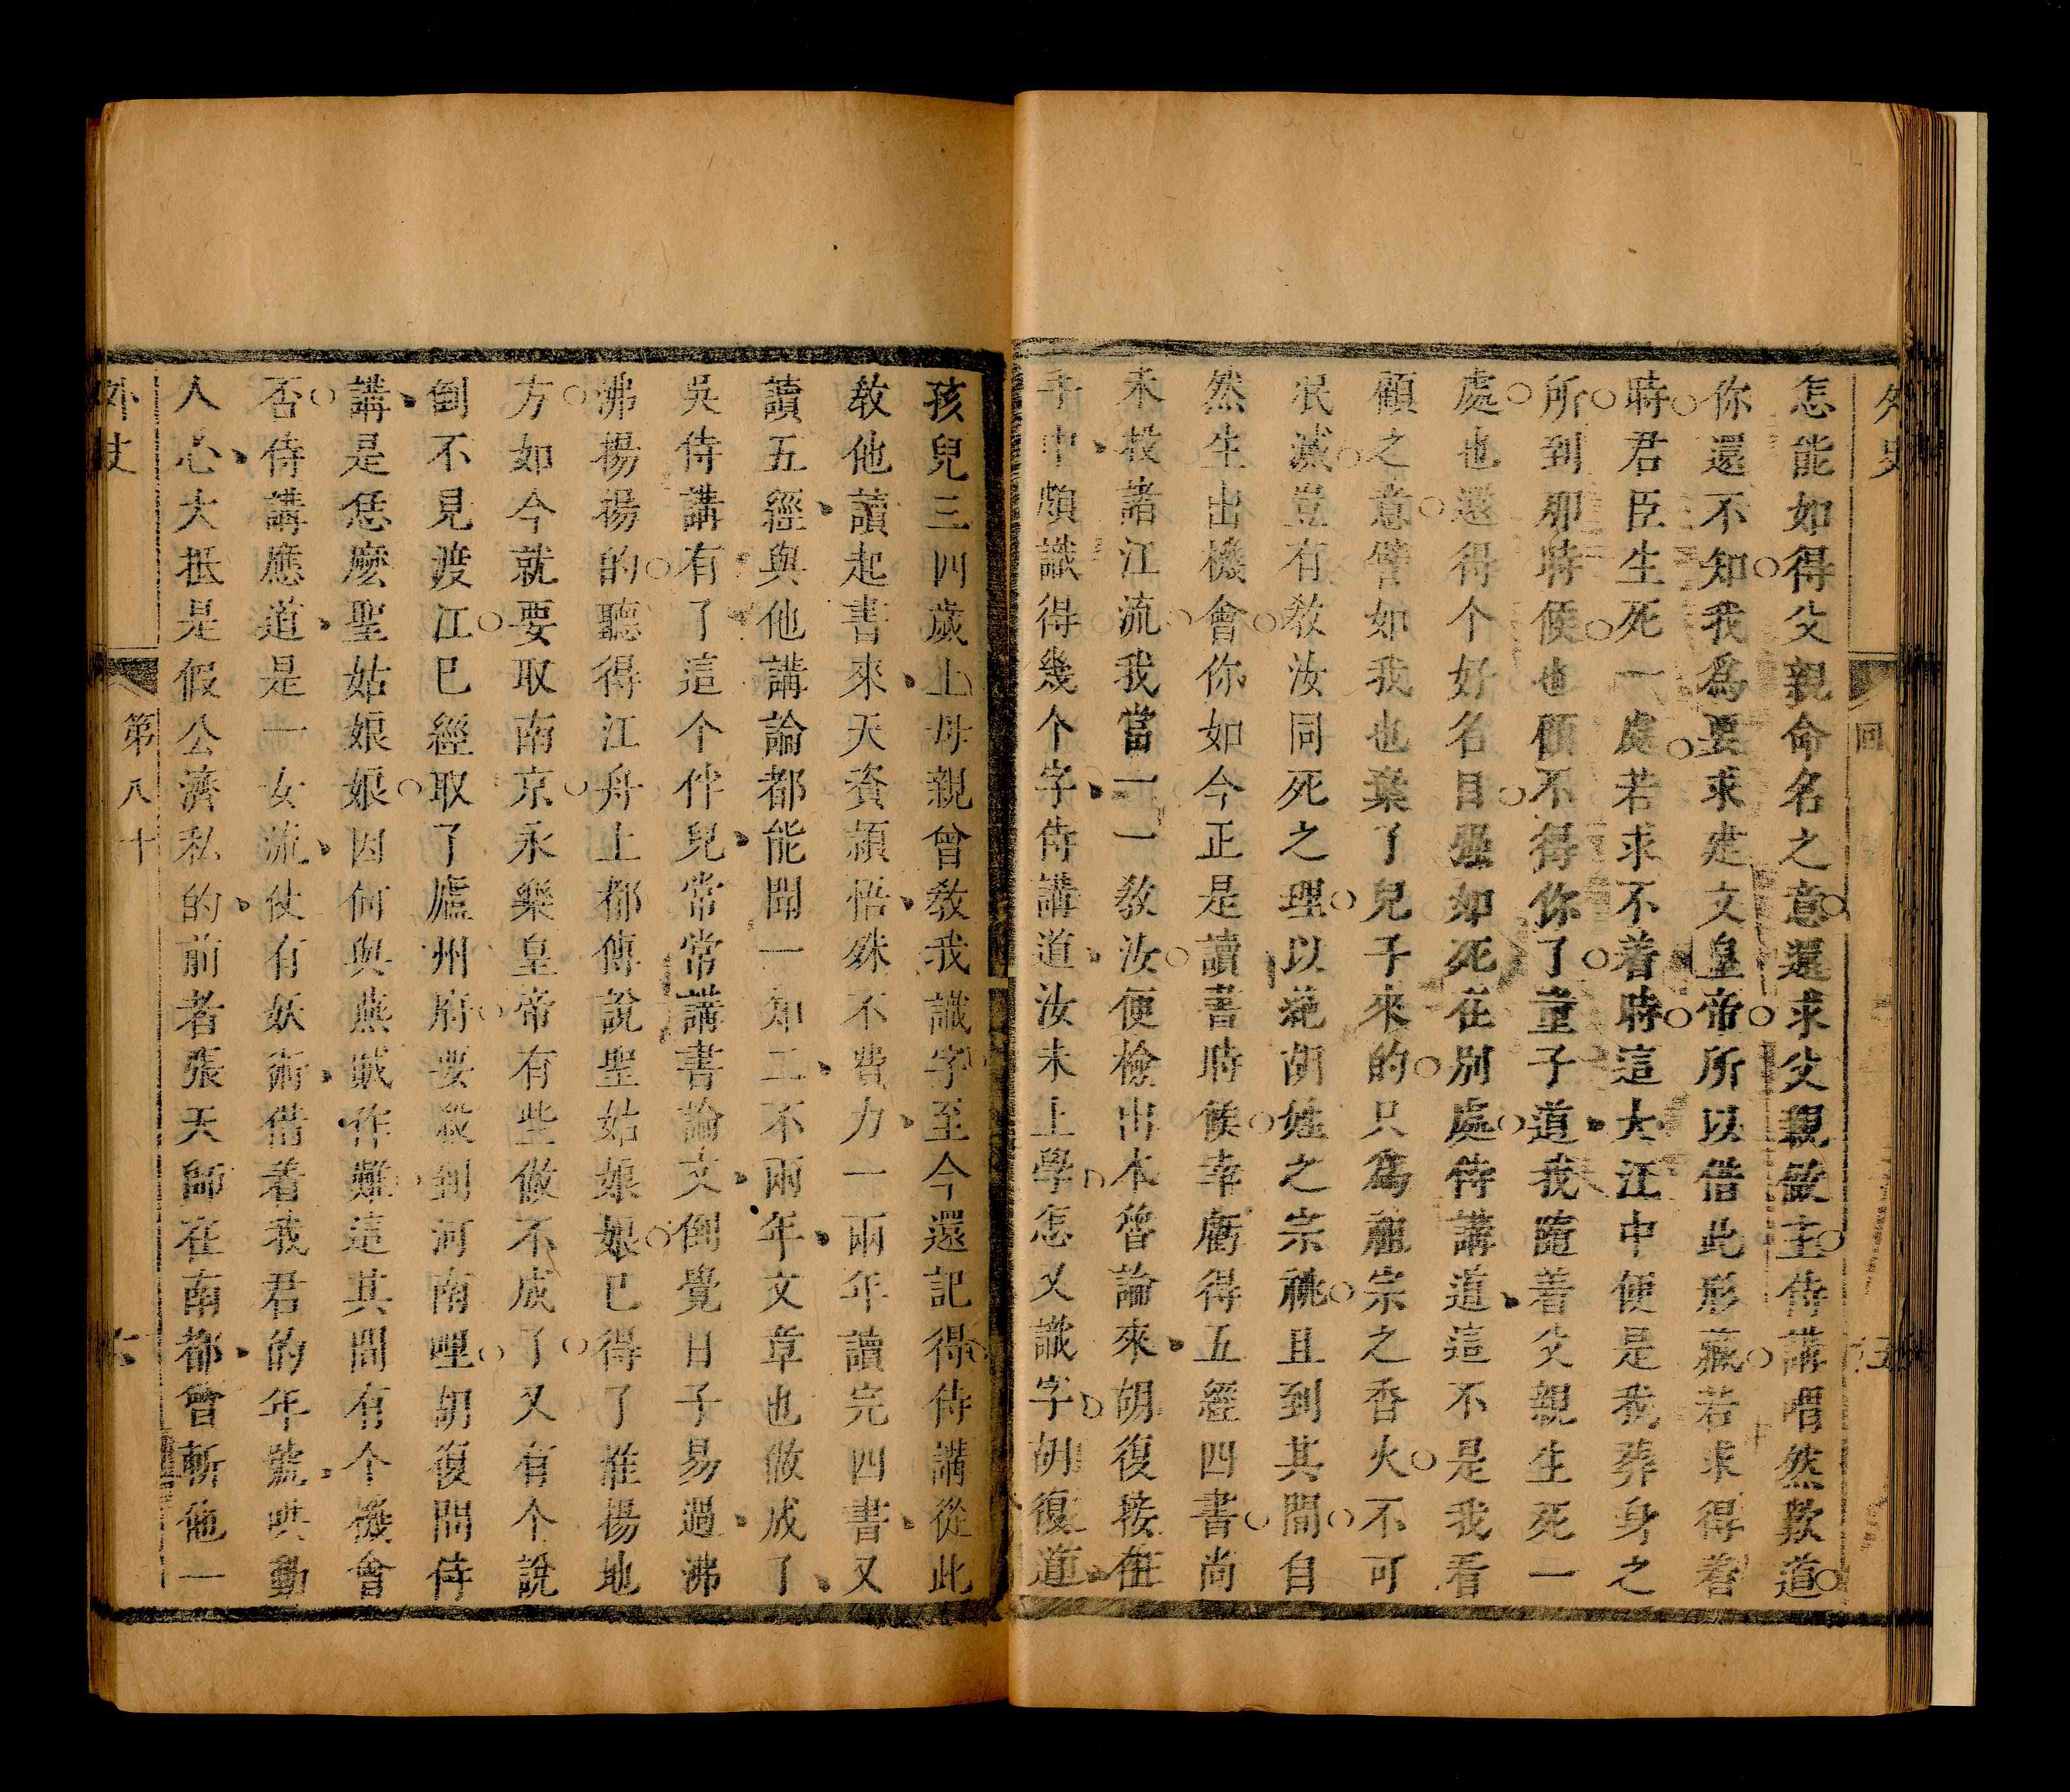 外史
回
五
怎能如得父親命名之意還求父親做主侍講喟然歎道
你還不知我為要求建文皇帝所以借此形藏若求得着
時君臣生死一處若求不着時這大江中便是我葬身之
所到那時候也顧不得你了童子道我隨着父親生死一
處也還得个好名目强如死在別處侍講道這不是我看
顧之意譬如我也棄了兒子來的只為祖宗之香火不可
泯滅豈有敎汝同死之理以絶胡姓之宗祧且到其間自
然生出機會你如今正是讀書時候幸虧得五經四書尚
未投諸江流我當一一敎汝便檢出本曾論來胡復接在
手中頗識得幾个字侍講道汝未上學怎又識字胡復道
孩兒三四歲上母親曾敎我識字至今還記得侍講從此
敎他讀起書來天資頴悟殊不費力一兩年讀完四書又
讀五經與他講論都能聞一知二不兩年文章也做成了
吳侍講有了這个伴兒常常講書論文倒覺日子易過沸
沸揚揚的聽得江舟上都傳說聖姑娘娘已得了淮揚地
方如今就要取南京永樂皇帝有些做不成了又有个說
倒不見渡江已經取了廬州府要殺到河南哩胡復問侍
講是恁麽聖姑娘娘因何與燕賊作難這其間有个機會
否侍講應道是一女流仗有妖術借着我君的年號哄動
人心大抵是假公濟私的前者張天師在南都曾斬他一
外史
第八十
六